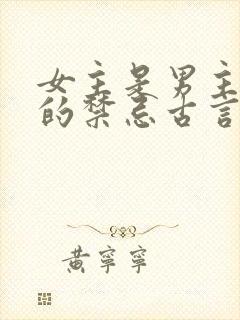 女主是男主
的禁忌古言
黄寧寧